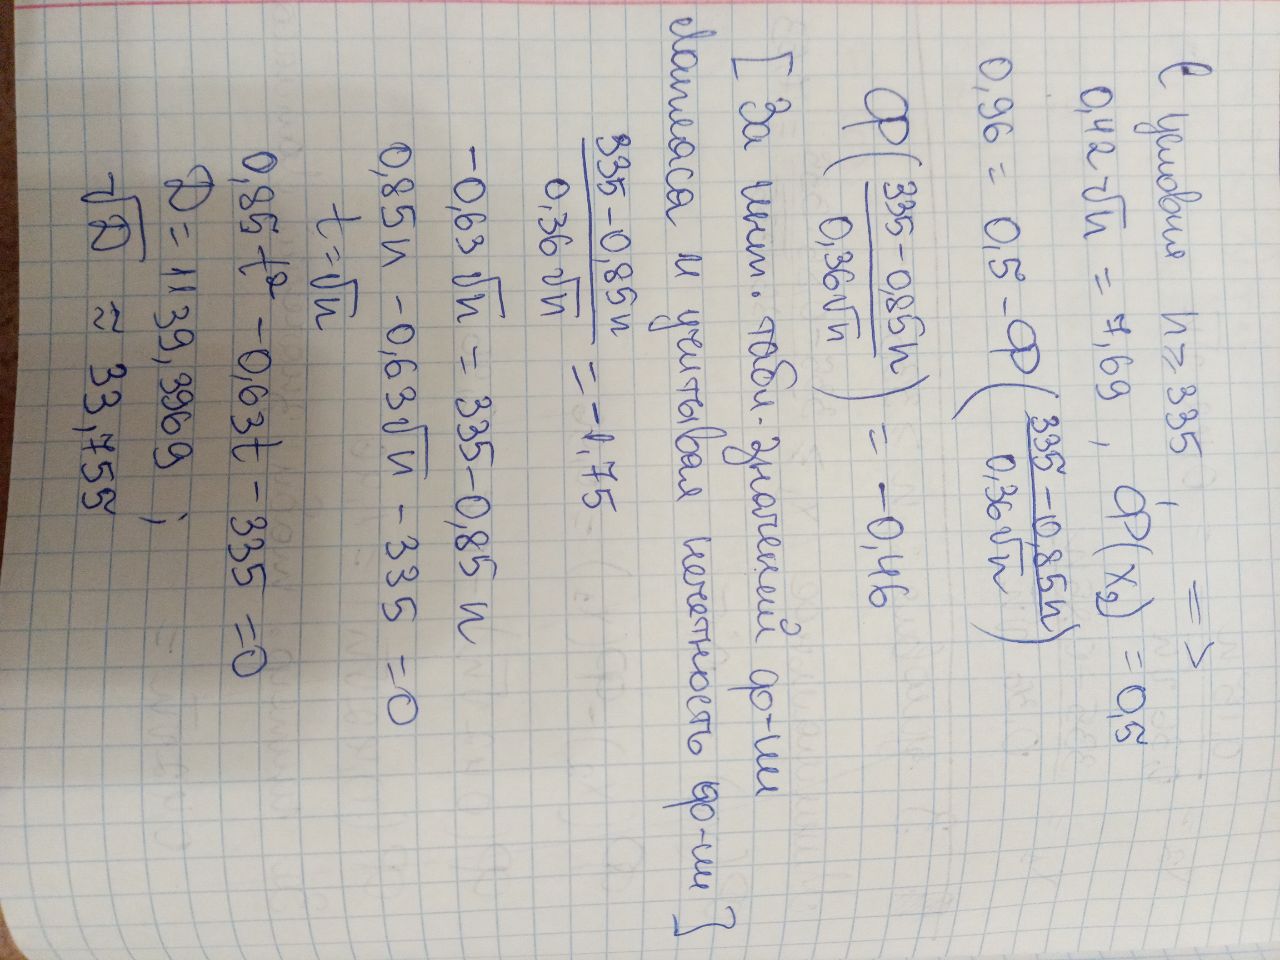 С условия n ≥ 335 , =>
0,42√n = 7,69 , Ф(x₂) = 0,5
0,96 = 0,5 - Ф((335 - 0,85n)/(0,36√n))
Ф((335 - 0,85n)/(0,36√n)) = -0,46
[ За инт. табл. значений ф-ии
Лапласа и учитывая нечетность ф-ии ]
(335 - 0,85n)/(0,36√n) = -1,75
-0,63√n = 335 - 0,85n
0,85n - 0,63√n - 335 = 0
t = √n
0,85t² - 0,63t - 335 = 0
D = 1139,3969 ;
√D ≈ 33,755